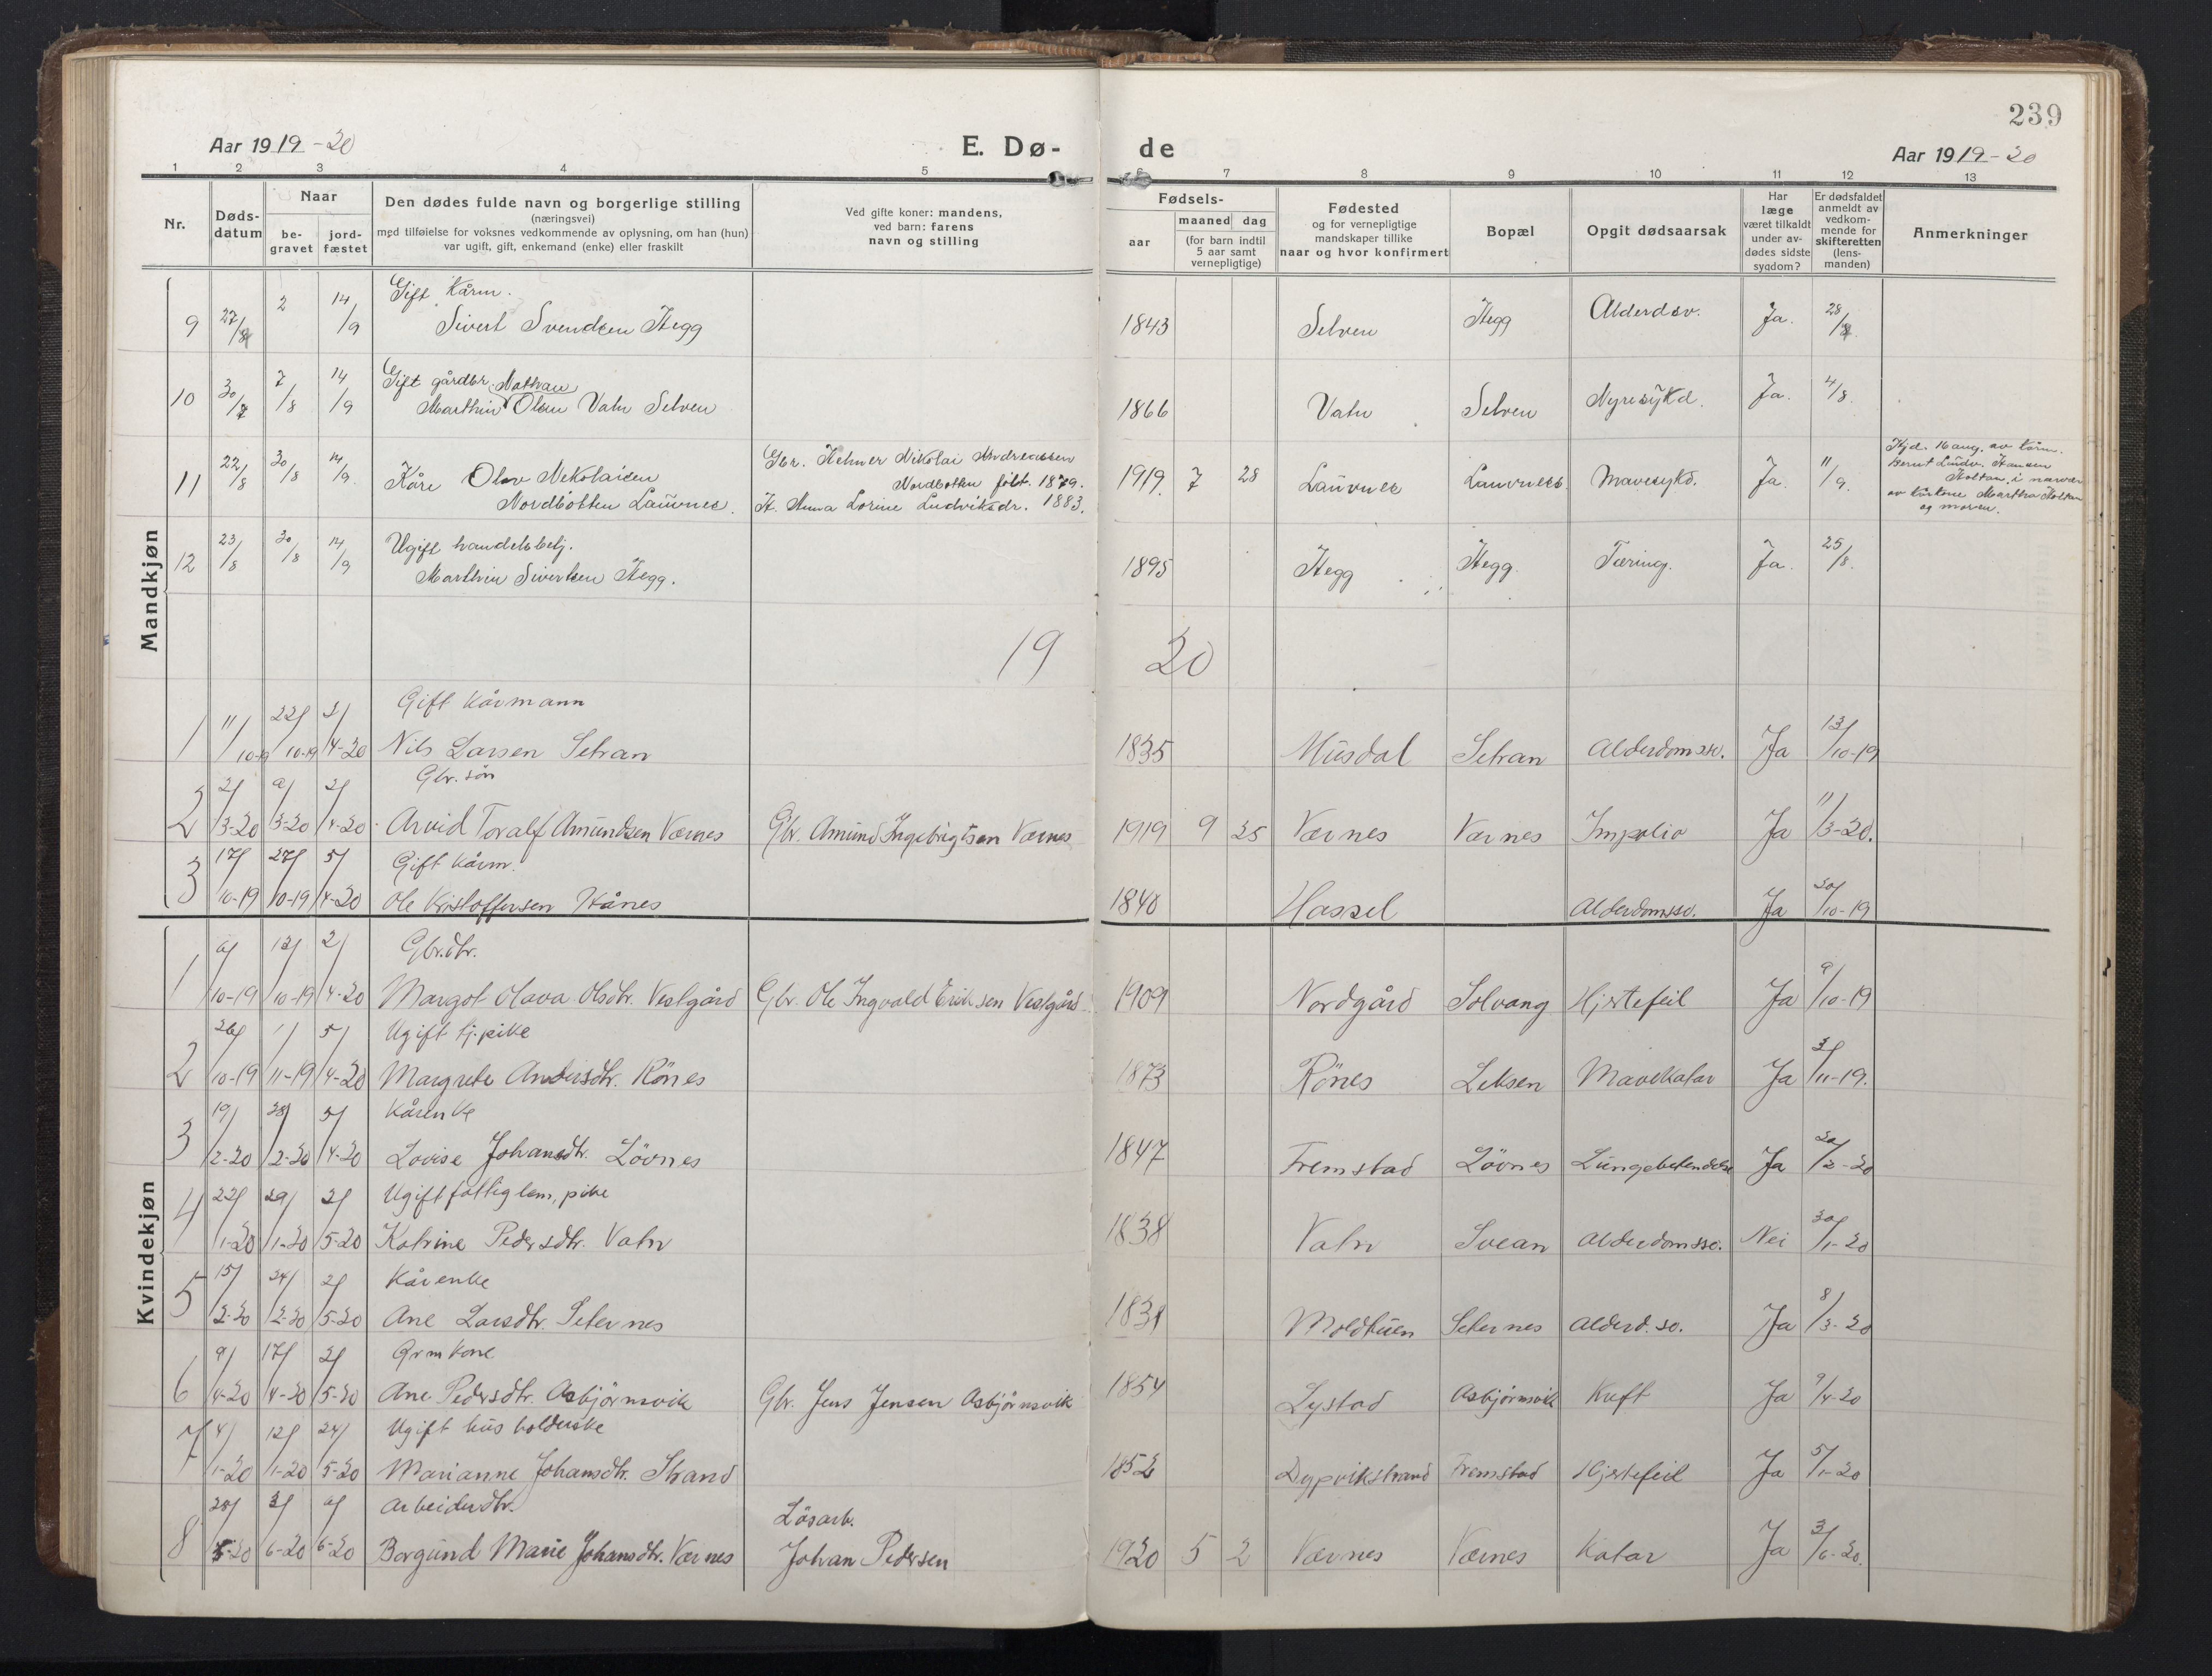 239
Aar 1919-20
E. Dø-
de
Aar 1919-20
1 2 3 4 5 6 7 8 9 10 11 12 13
Nr.
Døds-
datum
Naar
be-
gravet
jord-
fæstet
Den dødes fulde navn og borgerlige stilling
(næringsvei)
med tilføielse for voksnes vedkommende av oplysning, om han (hun)
var ugift, gift, enkemand (enke) eller fraskilt
Ved gifte koner: mandens,
ved barn: farens
navn og stilling
Fødsels-
aar
maaned dag
(for barn indtil
5 aar samt
vernepligtige)
Fødested
og for vernepligtige
mandskaper tillike
naar og hvor konfirmert
Bopæl
Opgit dødsaarsak
Har
læge
været tilkaldt
under av-
dødes sidste
sygdom?
Er dødsfaldet
anmeldt av
vedkom-
mende for
skifteretten
(lens-
manden)
Anmerkninger
Mandkjøn
Gift kårm.
9 27/8 2 14/9 Sivert Svendsen Hegg 1843 Selven Hegg Alderdsv. Ja. 28/8.
Gift gårdbr. Nathan
10 30/7 7/8 14/9 Marthin Olsen Vatn Selven 1866 Vatn Selven Nyresykd. Ja. 4/8.
11 22/8 30/8 14/9 Kåre Olav Nikolaisen
Nordbotten Lauvnes.
Gbr. Helmer Nikolai Andreassen
Nordbotten født. 1879.
H. Anna Lorine Ludviksdr. 1883.
1919. 7 28 Lauvnes Lauvness Mavesykd. Ja. 11/9.
Hjd. 16 aug. av kårm.
Bernt Ludv. Hansen
Holtan, i nærvær
av kårkone Martha Holtan
og moren.
Ugift handelsbetj.
12 23/8 30/8 14/9 Marthin Sivertsen Hegg. 1895 Hegg Hegg. Tæring. Ja. 25/8.
19 20
Gift Kårmann
1 11/10-19 22/10-19 2/4-20 Nils Larsen Setran 1835 Musdal Setran Alderdomssv. Ja 13/10-19
Gbr. søn
2 2/3-20 9/3-20 2/4-20 Arvid Toralf Amundsen Værnes Gbr. Amund Ingebrigtsen Værnes 1919 9 25 Værnes Værnes Ja 11/3-20.
Gift kårm.
3 17/10-19 27/10-19 5/4-20 Ole Kristoffersen Hånes 1840 Hassel Alderdomssv. Ja 20/10-19
Kvindekjøn
Gbr.dtr.
1 9/10-19 13/10-19 2/4-20 Margot Olava Olsdtr. Vestgård Gbr. Ole Ingvald Eriksen Vestgård 1909 Nordgård Solvang Hjertefeil Ja 9/10-19
Ugift tj.pike
2 26/10-19 1/11-19 5/4-20 Margrete Andersdtr. Rönes 1873 Rönes Leksen Mavekatar Ja 3/11-19.
Kårenke
3 19/2-20 28/2-20 5/4-20 Lovise Johansdtr. Lövnes 1847 Fremstad Lövnes Lungebetendelse Ja 20/2-20
Ugift fattiglem, pike
4 22/1-20 29/1-20 2/5-20 Katrine Pedersdtr. Vatn 1838 Vatn Svean Alderdomssv. Nei 30/1-20
Kårenke
5 15/2-20 24/2-20 2/5-20 Ane Larsdtr. Seternes 1831 Moldtuen Seternes Alderd.sv. Ja 8/3-20
Grmkone
6 9/4-20 17/4-20 2/5-20 Ane Pedersdtr. Asbjörnsvik Gbr. Jens Jensen Asbjörnsvik 1854 Lystad Asbjörnsvik Kreft Ja 9/4-20
Ugift husholderske
7 4/1-20 12/1-20 24/5-20 Marianne Johansdtr. Strand 1852 Dypvikstrand Fremstad Hjertefeil Ja 5/1-20
Arbeiderdtr.
Lösarb.
8 28/5-20 3/6-20 9/6-20 Borgund Marie Johansdtr. Værnes Johan Pedersen 1920 5 2 Værnes Værnes Katar Ja 3/6-20.